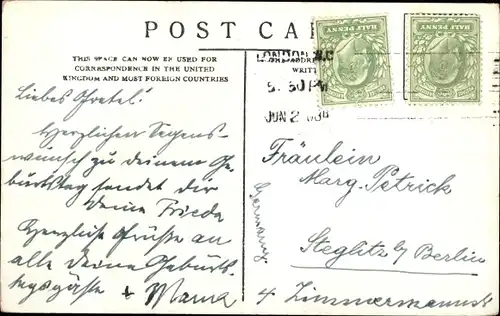 POST CA
THIS SPACE CAN NOW BE USED FOR
CORRESPONDENCE IN THE UNITED
KINGDOM AND MOST FOREIGN COUNTRIES
Liebes Gretel!
Herzlichen Segens-
wunsch zu deinem Ge-
burtstag sendet dir
deine Frieda
Herzliche Grüsse an
alle deine Geburts-
tagsgäste & Mama
HALF PENNY
HALF PENNY
LONDON
WRITT
5. 30 PM
JUN 2
Fräulein
Marg. Petrick
Steglitz b/ Berlin
4 Zimmermannst
Germany